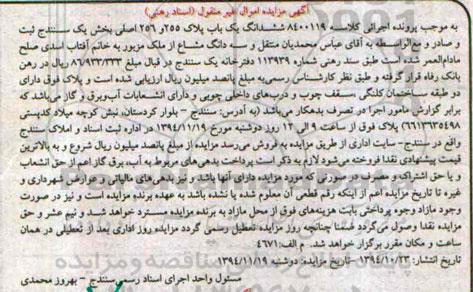 آگهی مزایده اموال غیر منقول (اسناد رهنی)
به موجب پرونده اجرائی کلاسه ۸۴۰۰۱۱۹ ششدانگ یک باب پلاک ۲۵۵و ۲۵۶ اصلی بخش یک سنندج ثبت
و صادر و مع‌الواسطه به آقای عباس محمدیان منتقل و سه دانگ مشاع از ملک مزبور به خانم آفتاب اسدی صلح
مادام‌العمر شده است طبق سند رهنی شماره ۱۱۳۹۳۹ دفترخانه یک سنندج در قبال مبلغ ۸۶/۹۳۳/۳۳۳ ریال در رهن
بانک رفاه قرار گرفته و طبق نظر کارشناس رسمی به مبلغ پانصد میلیون ریال ارزیابی شده است و پلاک فوق دارای
دو طبقه ساختمان کلنگی مسقف چوب و درب‌های داخلی چوبی و دارای انشعابات آب‌وبرق و گاز می‌باشد که
برابر گزارش مامور اجرا در تصرف بدهکار می‌باشد (به آدرس: سنندج – بلوار کردستان، نبش کوچه میلاد کدپستی
۶۶۱۳۶۳۵۴۹۸) پلاک فوق از ساعت ۹ الی ۱۲ روز دوشنبه مورخ ۱۳۹۴/۱۱/۱۹ در اداره ثبت اسناد و املاک سنندج
واقع در سنندج- سایت اداری از طریق مزایده به فروش می‌رسد مزایده از مبلغ پانصد میلیون ریال شروع و به بالاترین
قیمت پیشنهادی نقدا فروخته می‌شود لازم به ذکر است پرداخت بدهی‌های مربوط به آب، برق گاز اعم از حق انشعاب
و یا حق اشتراک و مصرف در صورتی که مورد مزایده دارای آنها باشد و نیز بدهی‌های مالیاتی و عوارض شهرداری و
غیره تا تاریخ مزایده اعم از اینکه رقم قطعی آن معلوم شده یا نشده باشد به عهده برنده مزایده است و نیز در صورت
وجود مازاد وجوه پرداختی بابت هزینه‌های فوق از محل مازاد به برنده مزایده مسترد خواهد شد و نیم عشر و حق
مزایده نقدا وصول می‌گردد ضمنا چنانچه روز مزایده تعطیل رسمی گردد مزایده روز اداری بعد از تعطیلی در همان
ساعت و مکان مقرر برگزار خواهد شد. م الف: ۴۶۷۱
تاریخ انتشار: ۱۳۹۴/۱۰/۲۳ – تاریخ مزایده: دوشنبه ۱۳۹۴/۱۱/۱۹
مسئول واحد اجرای اسناد رسمی سنندج – بهروز محمدی